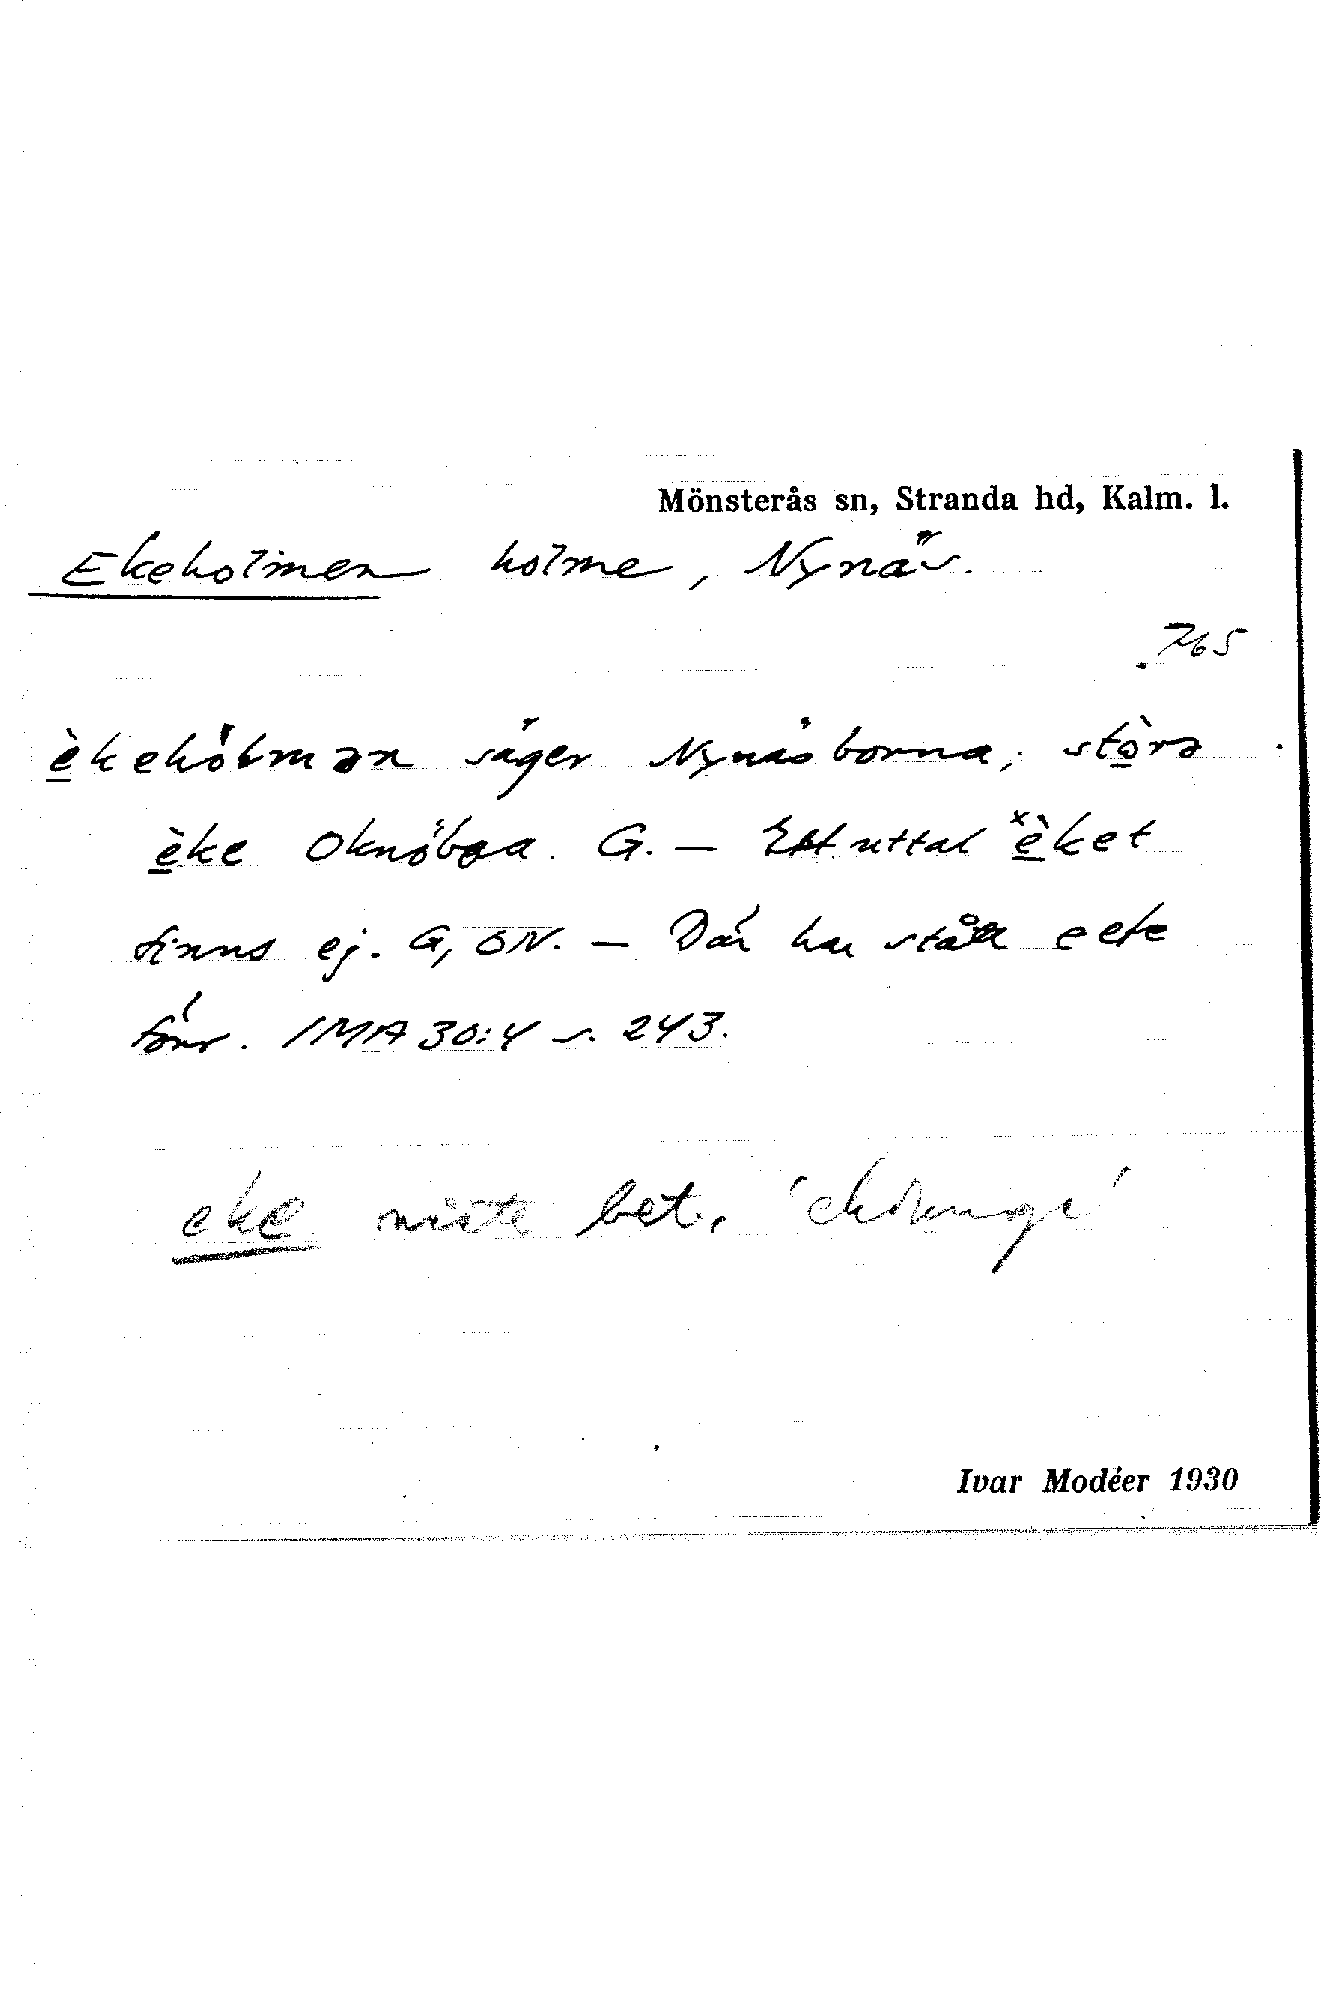 Mönsterås sn, Stranda hd, Kalm. l.
Ekeholmen holme, Nynäs.
765
èkehólmən säger Nynäsborna; stòrə
èke Oknöboa. G. — Ett uttal ˣèket
finns ej. G, ON. — Där har stått eke
förr. IMA 30:4 s. 243.
eke måste bet.
Ivar Modéer 1930